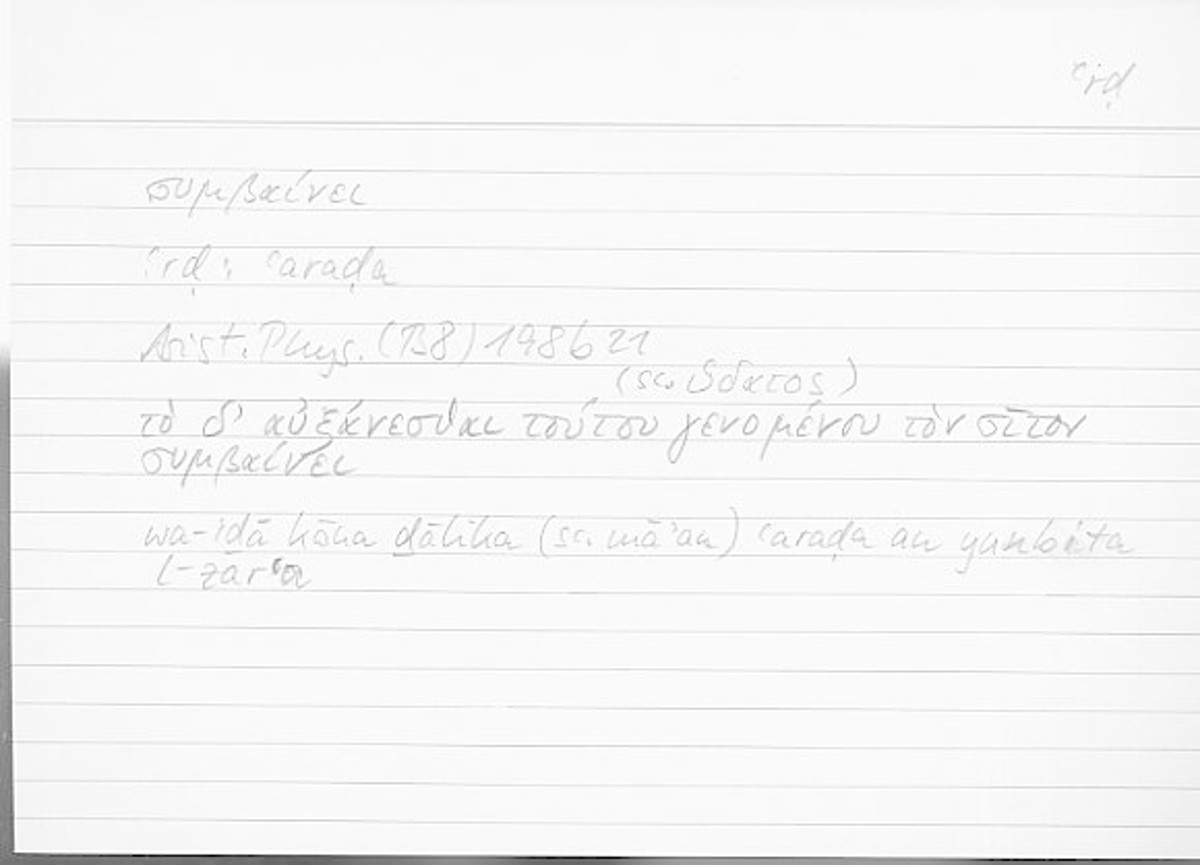 ʿrḍ
συμβαίνει
ʿrḍ: ʿaraḍa
Arist. Phys. (B8) 198b21
(sc. ὕδατος)
τὸ δ' αὐξάνεσθαι τούτου γενομένου τὸν σῖτον
συμβαίνει
wa-iḏā kāna ḏālika (sc. māʾan) ʿaraḍa an yunbita
l-zarʿa